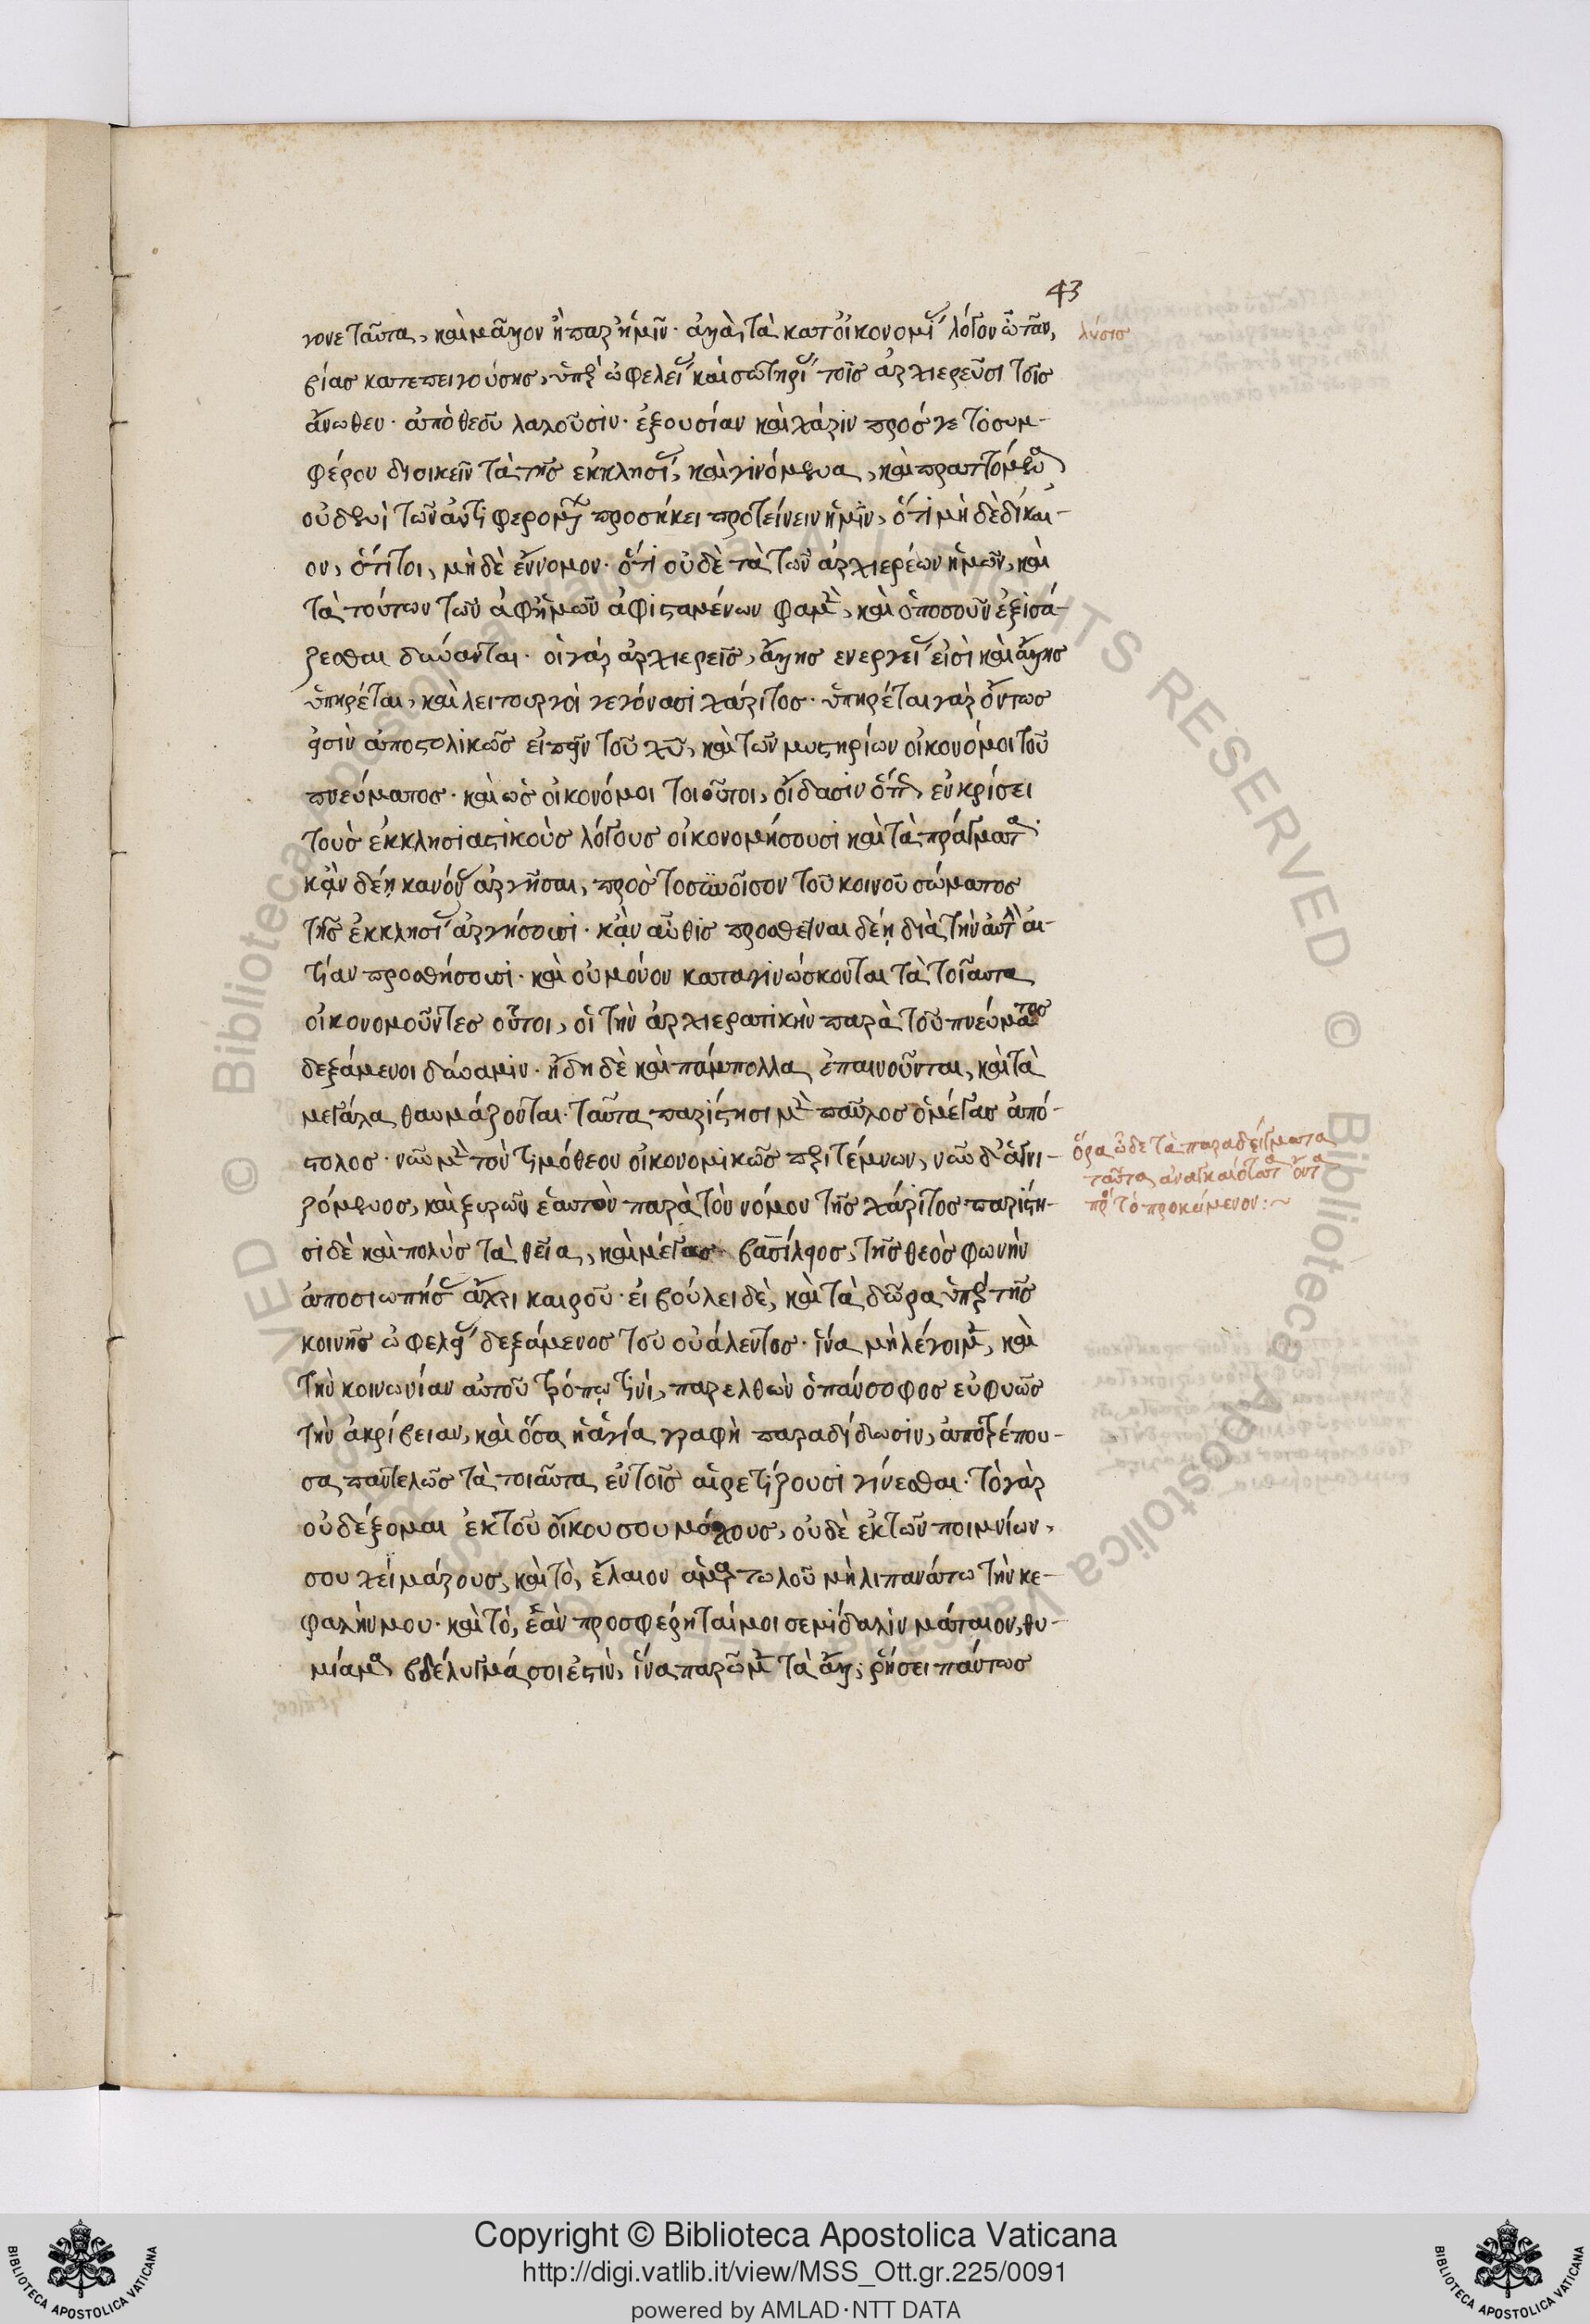 43
γονε ταῦτα, καὶ μᾶλλον ἢ παρ' ἡμῖν· ἀλλὰ τὰ κατ' οἰκονομίας λόγον ὦ τᾶν,
λύσις
βίας κατεπειγούσης, ὑπὲρ ὠφελείας καὶ σωτηρίας τοῖς ἀρχιερεῦσι τοῖς
ἄνωθεν· ἀπὸ θεοῦ λαχοῦσιν· ἐξουσίαν καὶ χάριν πρός γε τὸ συμ-
φέρον διοικεῖν τὰ τῆς ἐκκλησίας, καὶ γινόμενα, καὶ πραττόμενα
οὐδενὶ τῶν ἀντιφερομένων προσήκει προτείνειν ἡμῖν, ὅτι μὴ δὲ δίκαι-
ον, ὅτι τοι, μὴ δὲ ἔννομον· ὅτι οὐδὲ τὰ τῶν ἀρχιερέων ἡμῶν, καὶ
τὰ τούτων τῶν ἀφ' ἡμῶν ἀφισταμένων φαμὲν, καὶ ὁποσοῦν ἐξισά-
ζεσθαι δύνανται· οἱ γὰρ ἀρχιερεῖς, ἄλλης ἐνεργείας εἰσὶ καὶ ἄλλης
ὑπηρέται, καὶ λειτουργοὶ γεγόνασι χάριτος· ὑπηρέται γὰρ ὄντως
εἰσὶν ἀποστολικῶς εἰπεῖν τοῦ χῦ, καὶ τῶν μυστηρίων οἰκονόμοι τοῦ
πνεύματος· καὶ ὡς οἰκονόμοι τοιοῦτοι, οἴδασιν ὅπως ἐν κρίσει
τοὺς ἐκκλησιαστικοὺς λόγους οἰκονομήσουσι καὶ τὰ πράγματα·
κᾂν δέῃ κανόνας ἀργῆσαι, πρὸς τὸ συνοῖσον τοῦ κοινοῦ σώματος
τῆς ἐκκλησίας ἀργήσουσι· κᾂν αὖθις προσθεῖναι δέῃ διὰ τὴν αὐτὴν αἰ-
τίαν προσθήσουσι· καὶ οὐ μόνον καταγινώσκονται τὰ τοιαῦτα
οἰκονομοῦντες οὗτοι, οἱ τὴν ἀρχιερατικὴν παρὰ τοῦ πνεύματος
δεξάμενοι δύναμιν· ἤδη δὲ καὶ πάμπολλα ἐπαινοῦνται, καὶ τὰ
μεγάλα θαυμάζονται· ταῦτα παρίστησι μὲν παῦλος ὁ μέγας ἀπό-
στολος· νῦν μὲν τὸν τιμόθεον οἰκονομικῶς περιτέμνων, νῦν δ' ἁγνι-
ὅρα ὧδε τὰ παραδείγματα
ταῦτα ἀναγκαιότατα ὄντα
πρὸς τὸ προκείμενον:~
ζόμενος, καὶ ξυρῶν ἑαυτὸν παρὰ τὸν νόμον τῆς χάριτος· παρίστη-
σι δὲ καὶ πολὺς τὰ θεῖα, καὶ μέγας βασίλειος, τῆς θεὸς φωνὴν
ἀποσιωπήσας ἄχρι καιροῦ· εἰ βούλει δὲ, καὶ τὰ δῶρα ὑπὲρ τῆς
κοινῆς ὠφελείας δεξάμενος τοῦ οὐάλεντος· ἵνα μὴ λέγοιμεν, καὶ
τὴν κοινωνίαν αὐτοῦ τρόπῳ τινὶ, παρελθὼν ὁ πάνσοφος εὐφυῶς
τὴν ἀκρίβειαν, καὶ ὅσα ἡ ἁγία γραφὴ παραδίδωσιν, ἀποτρέπου-
σα παντελῶς τὰ τοιαῦτα ἐν τοῖς αἱρετίζουσι γίνεσθαι· τὸ γὰρ
οὐ δέξομαι ἐκ τοῦ οἴκου σου μόσχους, οὐδὲ ἐκ τῶν ποιμνίων,
σου χειμάρους, καὶ τὸ, ἔλαιον ἁμαρτωλοῦ μὴ λιπανάτω τὴν κε-
φαλήν μου· καὶ τὸ, ἐὰν προσφέρηταί μοι σεμίδαλιν μάταιον, θυ-
μίαμα βδέλυγμά σοι ἐστὶν, ἵνα παρῶμεν τὰ ἄλλα, ῥήσει πάντως
Copyright © Biblioteca Apostolica Vaticana
http://digi.vatlib.it/view/MSS_Ott.gr.225/0091
powered by AMLAD·NTT DATA